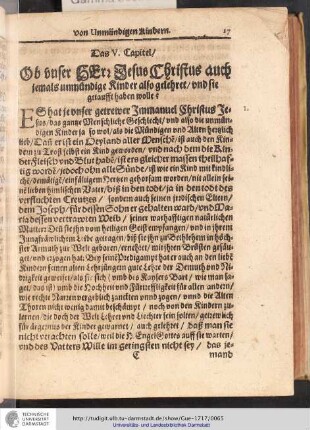 von Unmündigen Kindern. 17
Das V. Capitel/
Ob vnser HErr Jesus Christus auch
jemals vnmündige Kinder also gelehret/ vnd sie
getaufft haben wolle?
ES hat je vnser getrewer Immanuel Christus Je-
sus/ das gantze Menschliche Geschlecht/ vnd also die vnmün-
digen Kinder ja so wol/ als die Mündigen vnd Alten hertzlich
lieb/ Dañ er ist ein Heyland aller Mensche/ ist auch den Kin
dern zu Trost selbst ein Kind worden/ vnd nach dem die Kin-
der Fleisch vnd Blut habē/ ist ers gleicher massen theilhaff-
tig worde/ jedoch ohn alle Sünde/ ist wie ein Kind mit
demütiges/ einfältiges Hertzen gehorsam worden/ nit allein sei-
nem lieben himlischen Vater/ biß in den todt/ ja in den todt des
verfluchten Creutzes/ sondern auch seinen jrdischen Eltern/
dem Joseph/ für dessen Sohn er gehalten ward/ vnd Ma-
ria dessen vertrawten Weib/ seiner warhafftigen natürlichen
Mutter: Deñ sie jhn vom heiligen Geist empfangen/ vnd in jhrem
Jungfräwlichem Leibe getragen/ biß sie jhn zu Bethlehem in höch-
ster Armuth zur Welt geboren/ ernehret/ mit jhren Brüsten gesäu-
get/ vnd erzogen hat: Bey seine Predigampt hat er auch an den liebē
Kindern seinen alten Lehrjüngern gute Lehre der Demuth vnd Ni-
drigkeit gewiesen/ als für sich/ vnd des Keysers Bait/ wie man sa-
get/ das ist/ vmb die Hochheit vnd Fürtreffligkeit für allen andern/
wie rechte Narren vergeblich zanckten vnd zogen/ vnnd die Alten
Thoren nicht wenig damit beschämpt/ noch von den Kindern zu-
lernen/ die doch der Welt Lehrer vnd Liechter sein solten/ getrewlich
für ärgernus der Kinder gewarnet/ auch gelehret/ daß man sie
nicht verachten solle/ weil die H. Engel Gottes auff sie warten/
vnd des Vatters Wille im geringsten nicht sey/ das je-
C mand
TECHNISCHE
UNIVERSITÄT
DARMSTADT
http://tudigit.ulb.tu-darmstadt.de/show/Gue-1717/0065
Universitäts- und Landesbibliothek Darmstadt